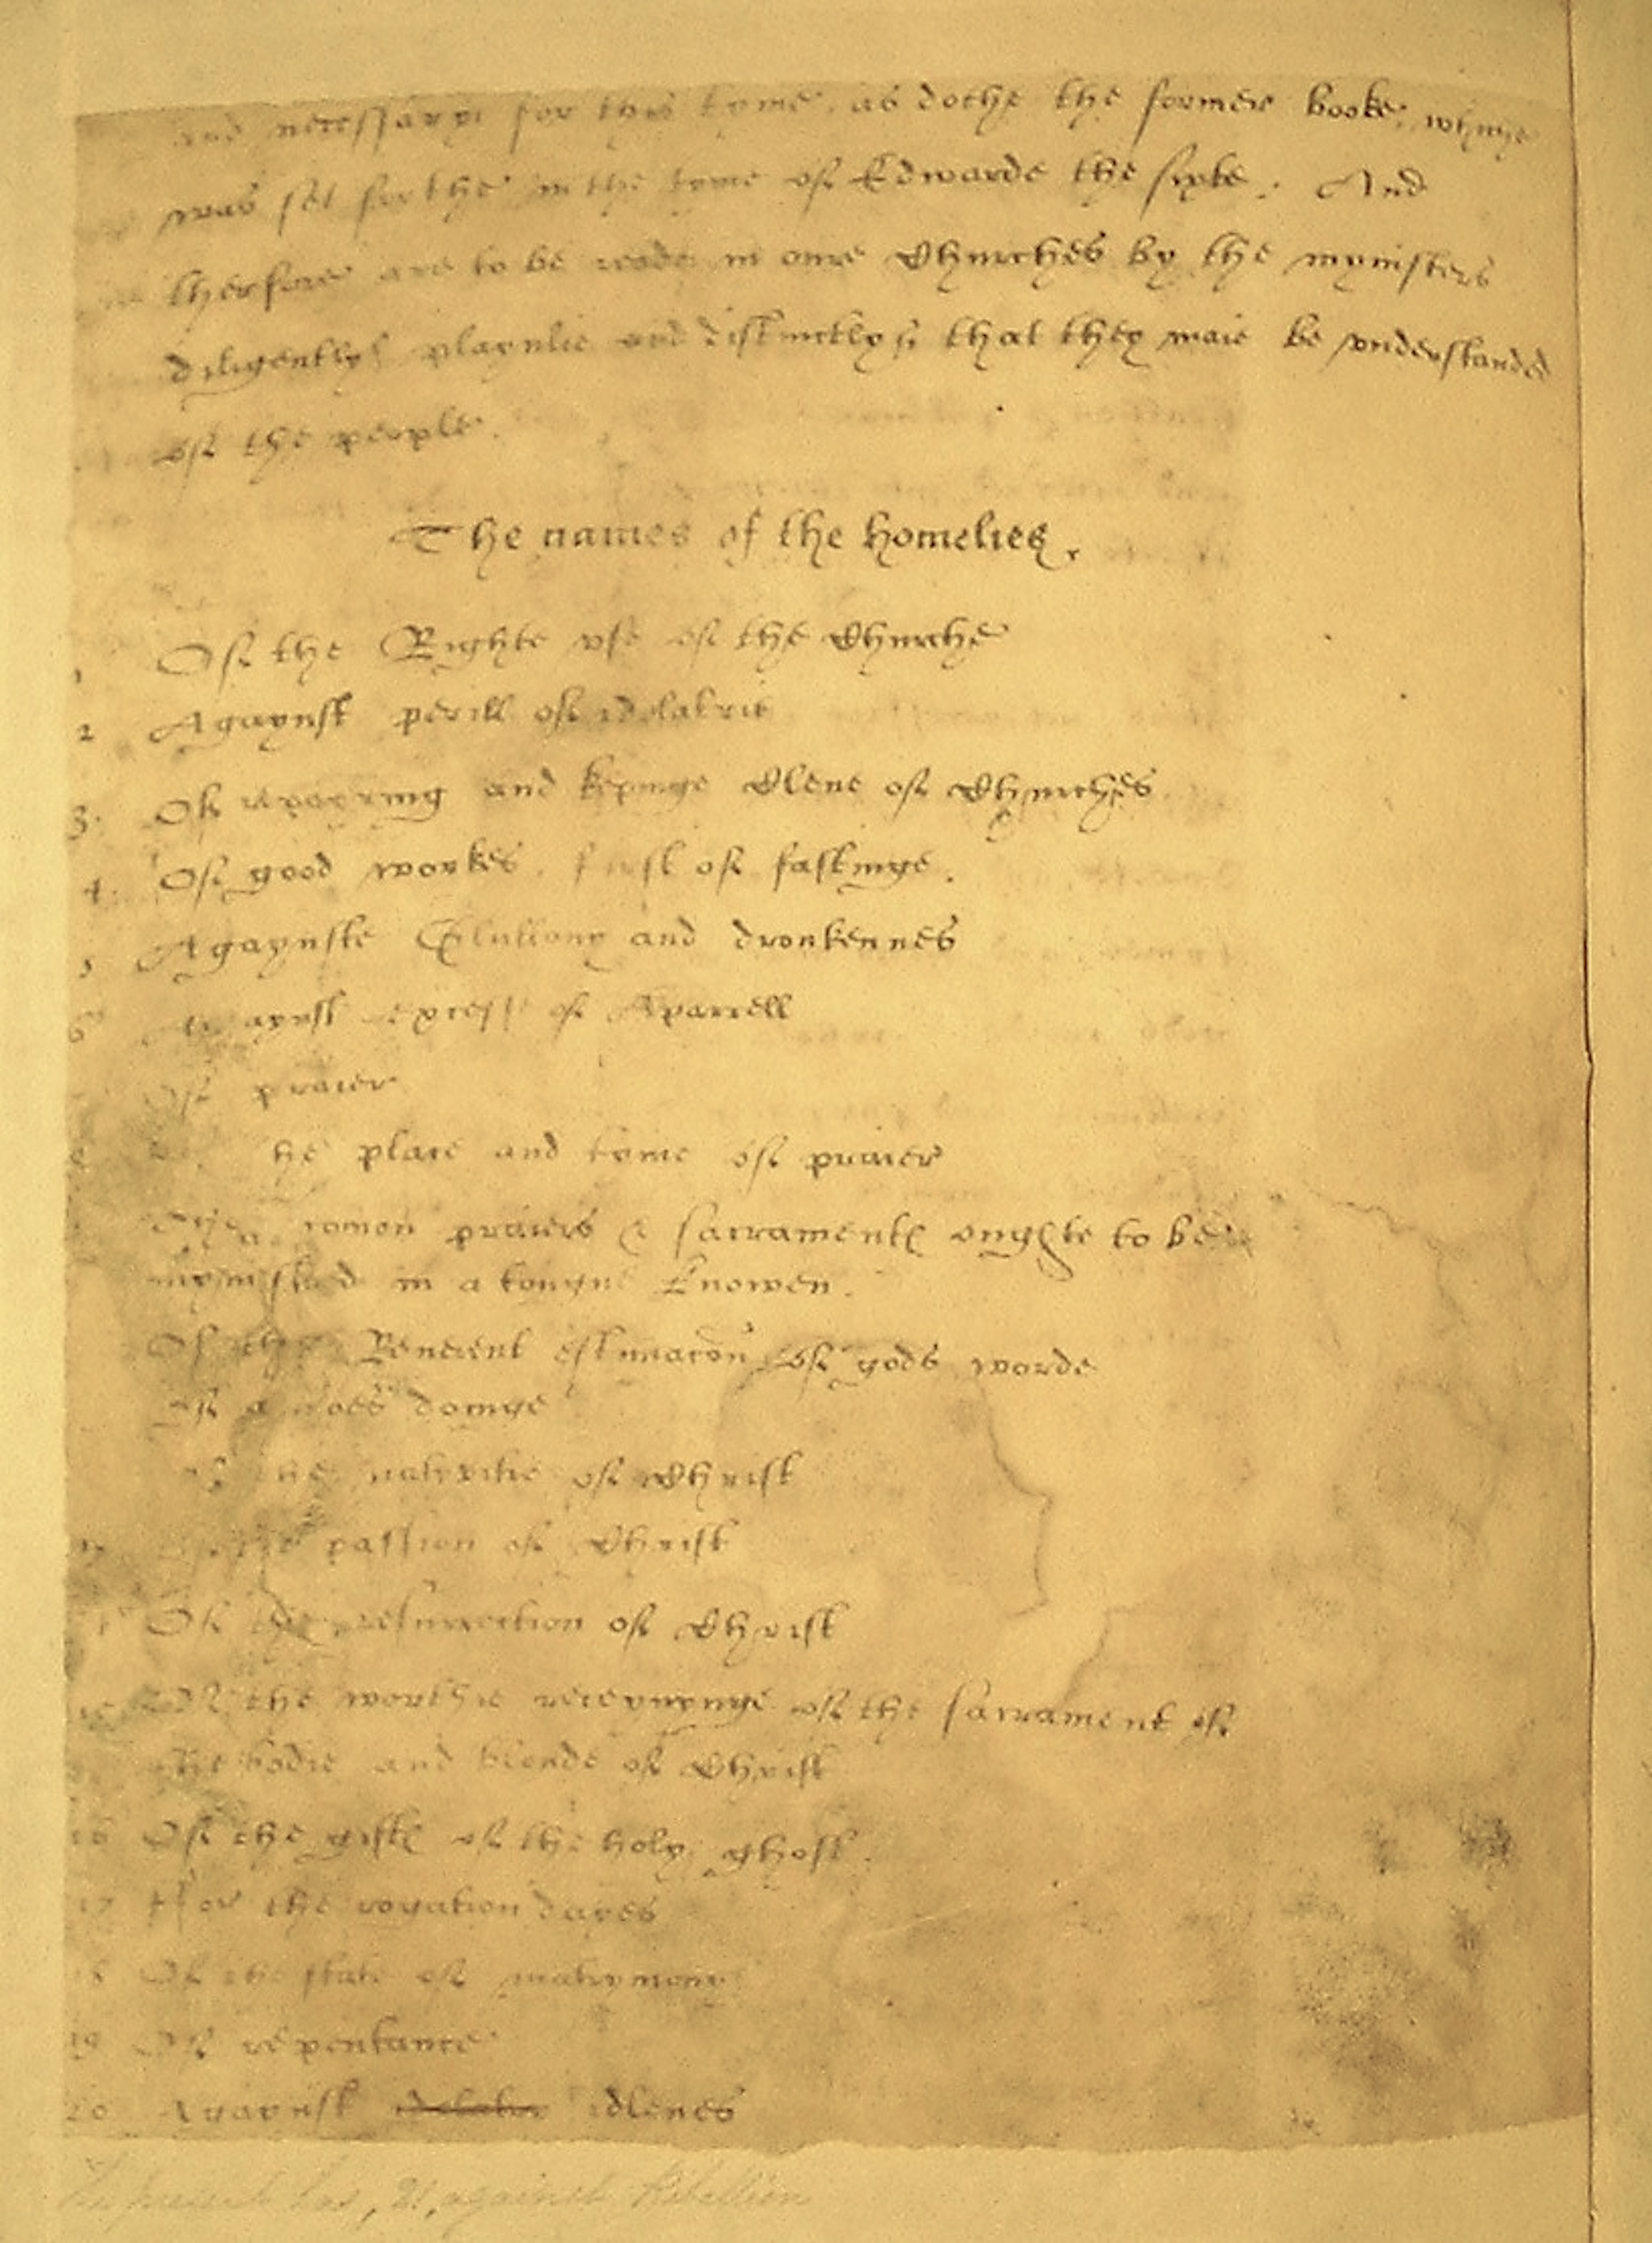 and necessary for this tyme, as dothe the former booke, whiche
was set forthe in the tyme of Edwarde the sixte. And
therfore are to be rede in oure Churches by the mynisters
diligently, playnlie and distinctly, that they maie be understanded
of the people.
The names of the homelies.
1 Of the Righte use of the Churche
2 Agaynst perill of idolatrie
3. Of repayring and kepinge Clene of Churches
4. Of good workes, first of fastinge.
5 Agaynste Gluttony and dronkennes
6 Agaynst excesse of Aparrell
Of praier
he place and tyme of praier
comon praiers & sacramentes oughte to be
mynistred in a tongue knowen.
Of the Reverent estimacon of gods worde
Of almoes doinge
Of the nativitie of Christ
the passion of Christ
Of the resurrection of Christ
15 Of the worthie receyvynge of the sacrament of
the bodie and bloude of Christ
16 Of the gifte of the holy ghost.
17 ffor the rogation dayes
18 Of the state of matrymony
19 Of repentance
20 Agaynst idlenes
The present has, 21, against Rebellion